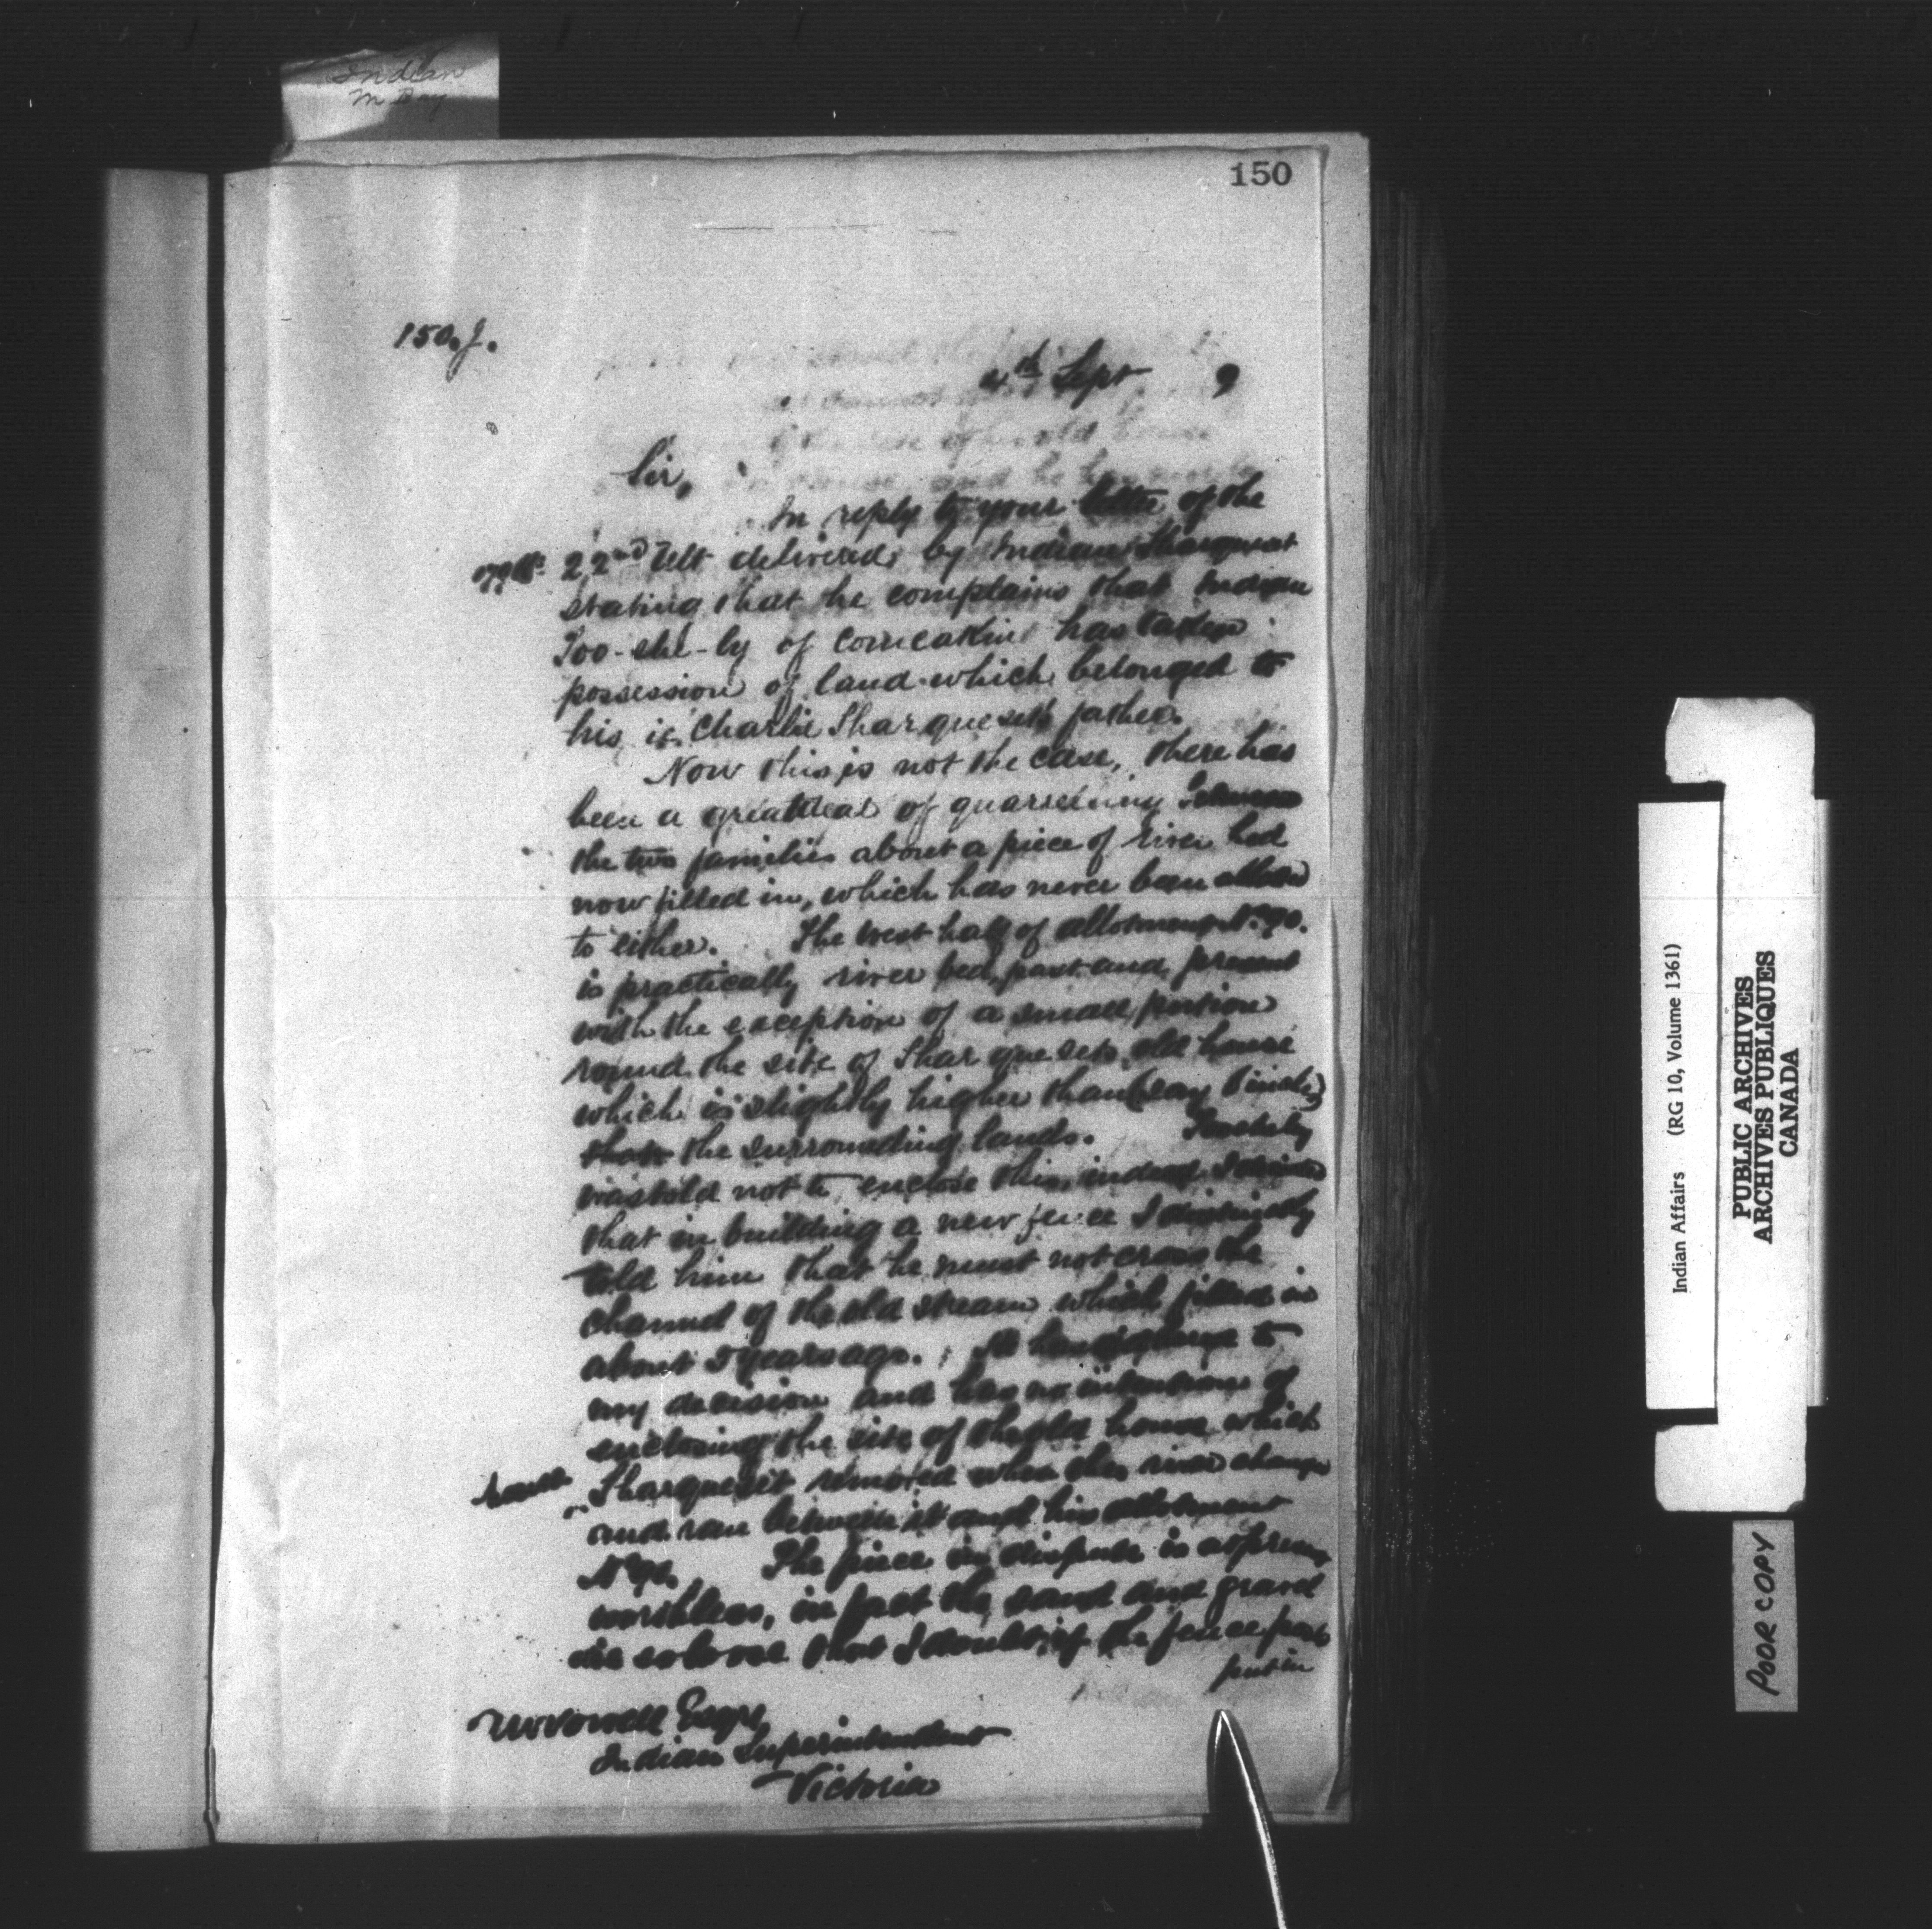 Indian
150
150.J.
4th Sept 9
Sir,
In reply to your letter of the
22nd Ult delivered by Indian Sharquset
stating that he complains that Indian
Too-che-ly of Comeakin has taken
possession of land which belonged to
his ie Charlie Sharquesets father.
Now this is not the case, there has
been a great deal of quarreling between
the two families about a piece of river bed
now filled in, which has never been
to either. The west half of allotment No 90.
is practically river bed, past and present
with the exception of a small portion
round the site of Sharquesets old house
which is slightly higher than (say inches)
than the surrounding lands.
was told not to enclose this, indeed
that in building a new fence I distinctly
told him that he must not cross the
channel of the old stream which filled in
about 5 years ago. to
my decision and has no intention of
enclosing the site of the old house which
house
Sharqueset removed when the river change
and ran between it and his allotment
No The piece in dispute is at present
worthless, in fact the sand and gravel
that I doubt if the fence post
put in
Esqre
Indian Superintendent
Victoria
Indian Affairs (RG 10, Volume 1361)
PUBLIC ARCHIVES
ARCHIVES PUBLIQUES
CANADA
POOR COPY